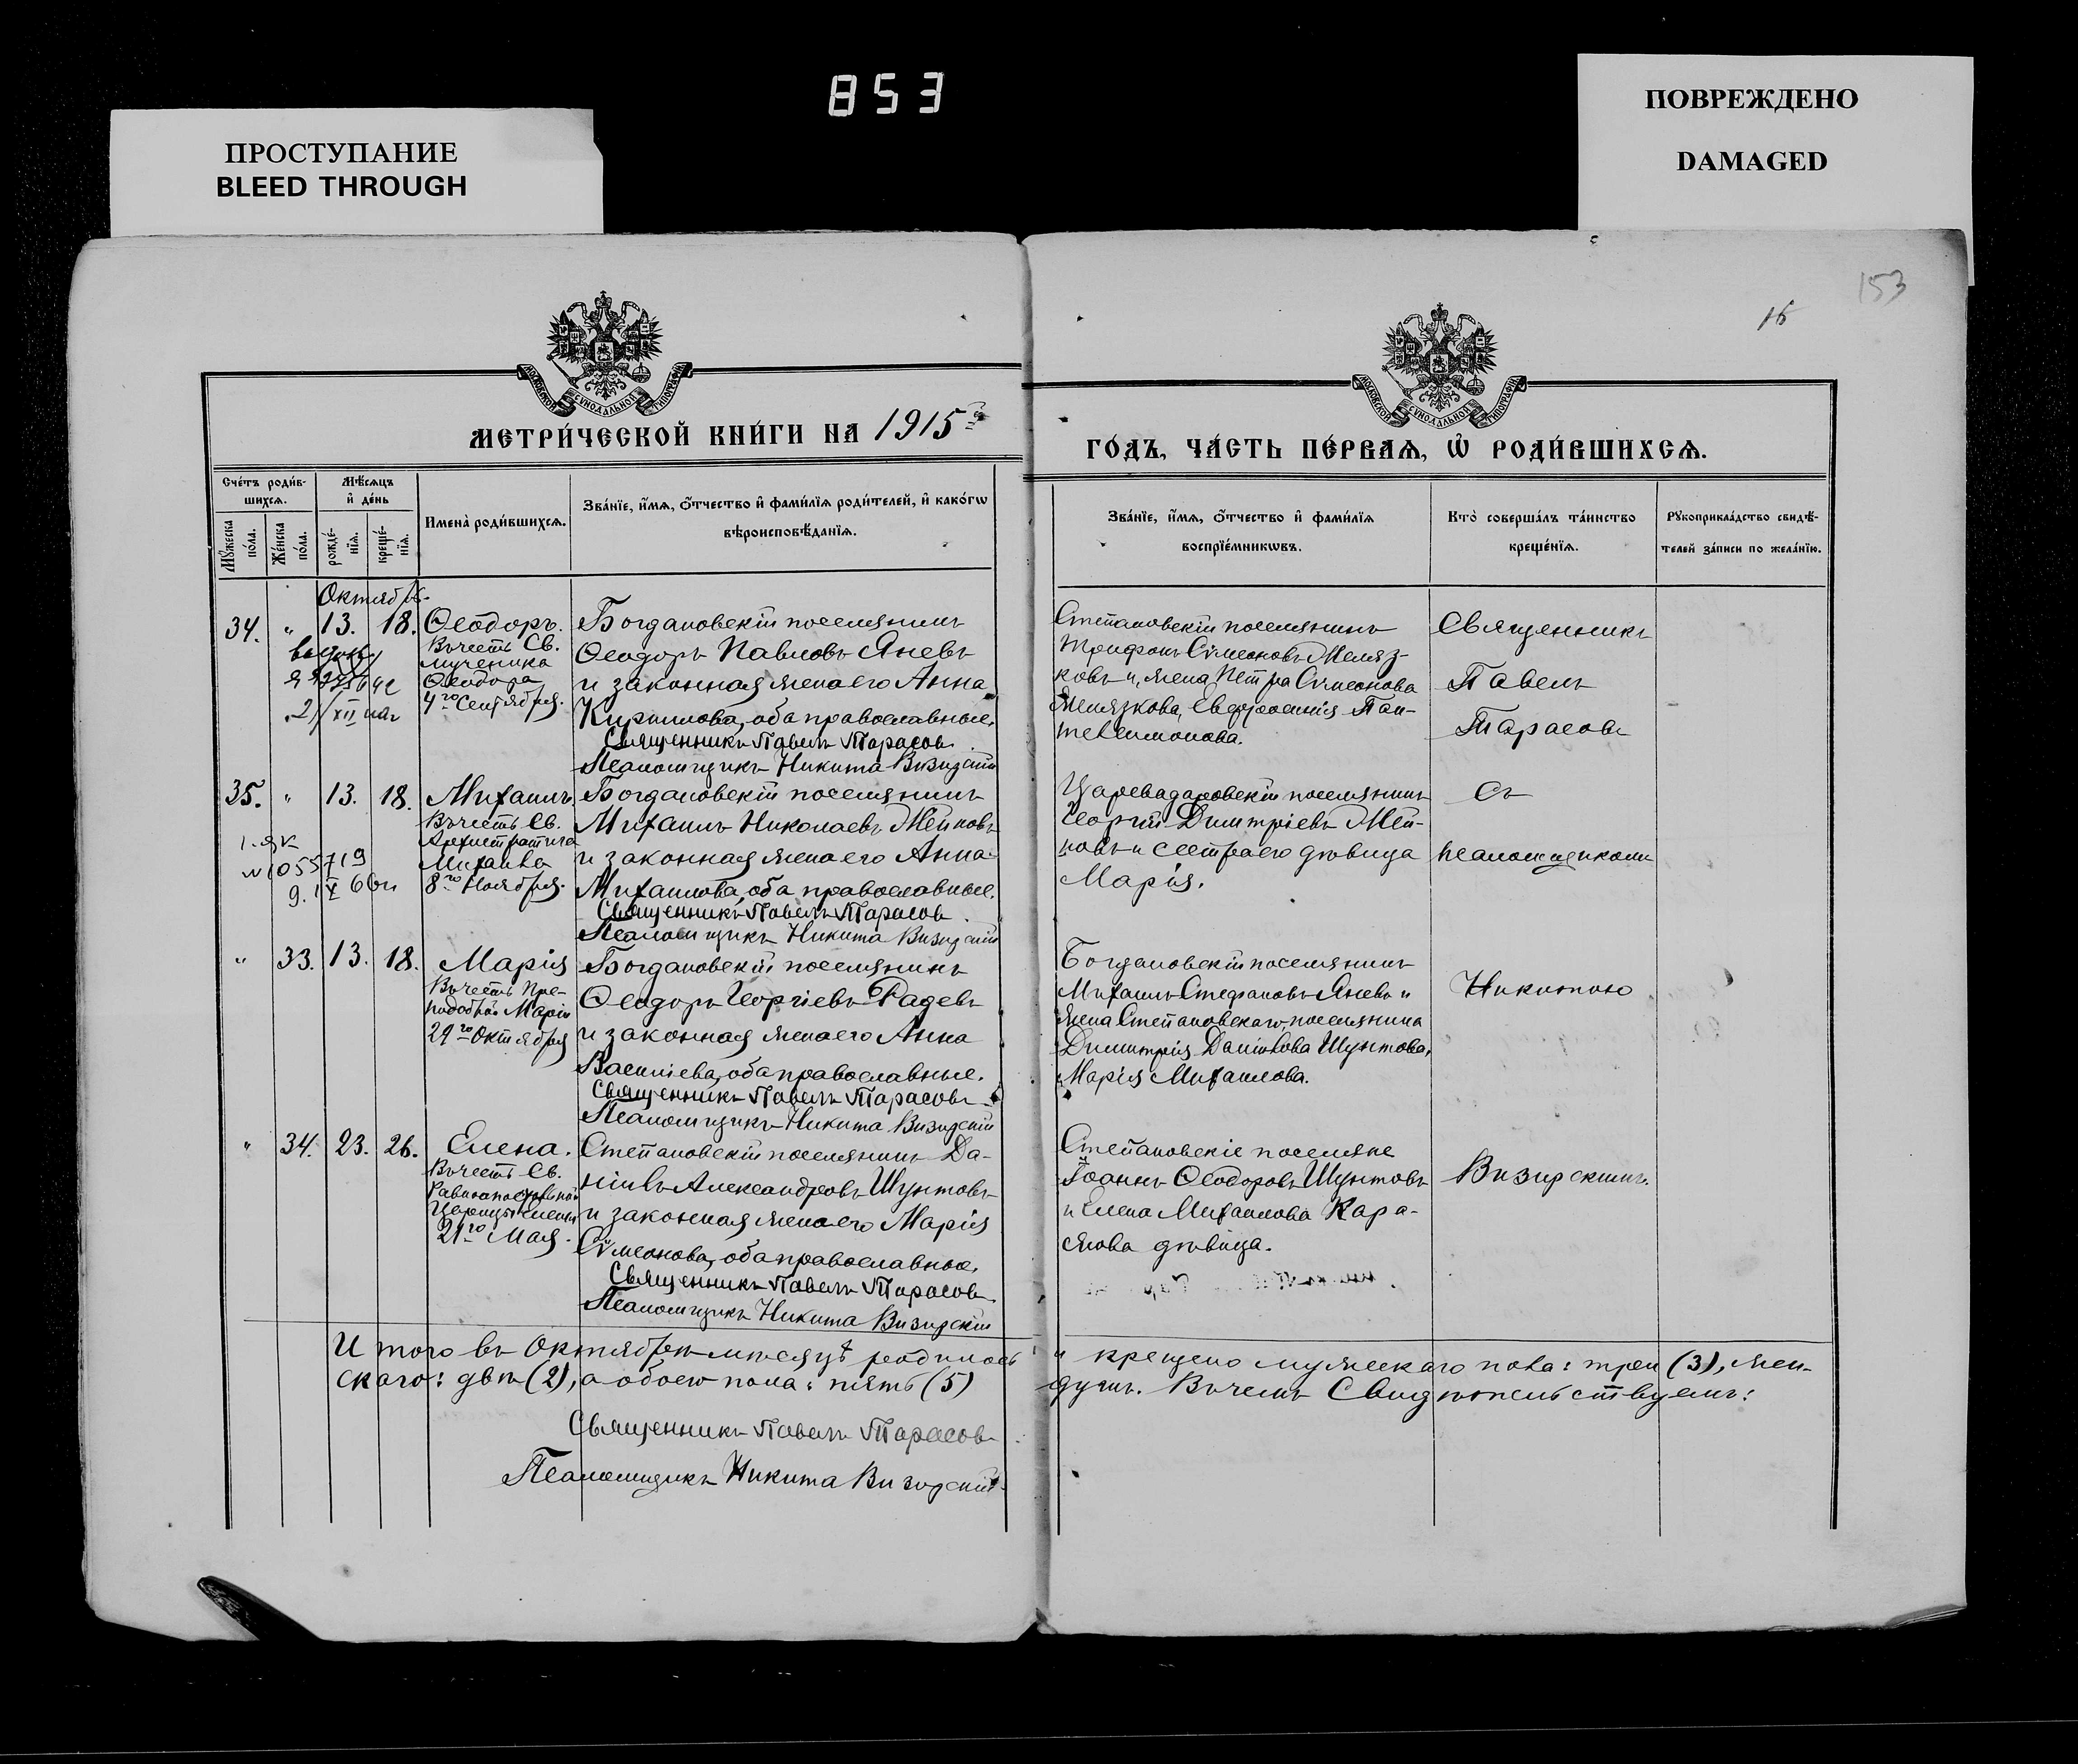 853
ПРОСТУПАНИЕ
BLEED THROUGH
ПОВРЕЖДЕНО
DAMAGED
153
16
МОСКОВСКОЙ СУНОДАЛЬНОЙ ТИПОГРАФІИ
МОСКОВСКОЙ СУНОДАЛЬНОЙ ТИПОГРАФІИ
МЕТРИ́ЧЕСКОЙ КНИ́ГИ НА 1915й
ГО́ДЪ, ЧА́СТЬ ПЕ́РВАѦ, Ѡ҆ РОДИ́ВШИХСѦ.
Сче́тъ роди́в-
шихсѧ.
Мѣ́сѧцъ
и҆ де́нь
Мꙋ́жеска
по́ла.
Же́нска
по́ла.
рожде́-
нїѧ.
креще́-
нїѧ.
Имена̀ роди́вшихсѧ.
Зва́нїе, и҆́мѧ, о҆́тчество и҆ фами́лїѧ роди́телей, и҆ како́гѡ
вѣроисповѣ́данїѧ.
Зва́нїе, и҆́мѧ, о҆́тчество и҆ фами́лїѧ
воспрїе́мникѡвъ.
Кто̀ соверша́лъ та́инство
креще́нїѧ.
Рꙋкоприкла́дство свидѣ́-
телей за́писи по жела́нїю.
Октябрь.
34. " 13. 18. Ѳеодоръ.
Въ честь Св.
мученика
Ѳеодора
4го Сентября.
Богдановскій поселянинъ
Ѳеодоръ Павловъ Яневъ
и законная жена его Анна
Кириллова, оба православные.
Священникъ Павелъ Тарасов
Псаломщикъ Никита Визирскій
Степановскій поселянинъ
Трифонъ Сѵмеоновъ Желяз-
ковъ и жена Петра Сѵмеонова
Желязкова, Евфросинія Пан-
телеимонова.
Священникъ
Павелъ
Тарасовъ
35. " 13. 18. Михаилъ
Въ честь Св.
Архистратига
Михаила
8го Ноября.
1055719
Богдановскій поселянинъ
Михаилъ Николаевъ Жейновъ
и законная жена его Анна
Михаилова, оба православные.
Священникъ Павелъ Тарасов
Псаломщикъ Никита Визирскій
Царевадаровскій поселянинъ
Георгій Димитріевъ Жей-
новъ и сестра его дѣвица
Марія.
съ
псаломщикомъ
" 33. 13. 18. Марія
Въ честь Пре-
подобной Маріи
29го Октября
Богдановскій поселянинъ
Ѳеодоръ Георгіевъ Радевъ
и законная жена его Анна
Васильева, оба православные.
Священникъ Павелъ Тарасовъ
Псаломщикъ Никита Визирскій
Богдановскій поселянинъ
Михаилъ Стефановъ Яневъ и
жена Степановскаго поселянина
Димитрія Даніилова Шунтова,
Марія Михаилова.
Никитою
" 34. 23. 26. Елена.
Въ честь Св.
Равноапостольной
Царицы Елены
21го Мая.
Степановскій поселянинъ Да-
ніилъ Александровъ Шунтовъ
и законная жена его Марія
Сѵмеонова, оба православные.
Священникъ Павелъ Тарасовъ
Псаломщикъ Никита Визирскій
Степановскіе поселяне
Іоаннъ Ѳеодоровъ Шунтовъ
и Елена Михаилова Кара-
янова дѣвица.
Визирскимъ.
Итого въ Октябрѣ мѣсяцѣ родилось и крещено мужескаго пола: три (3), жен-
скаго: двѣ (2), а обоего пола: пять (5) душъ. Въ чемъ Свидѣтельствуемъ:
Священникъ Павелъ Тарасовъ
Псаломщикъ Никита Визирскій.